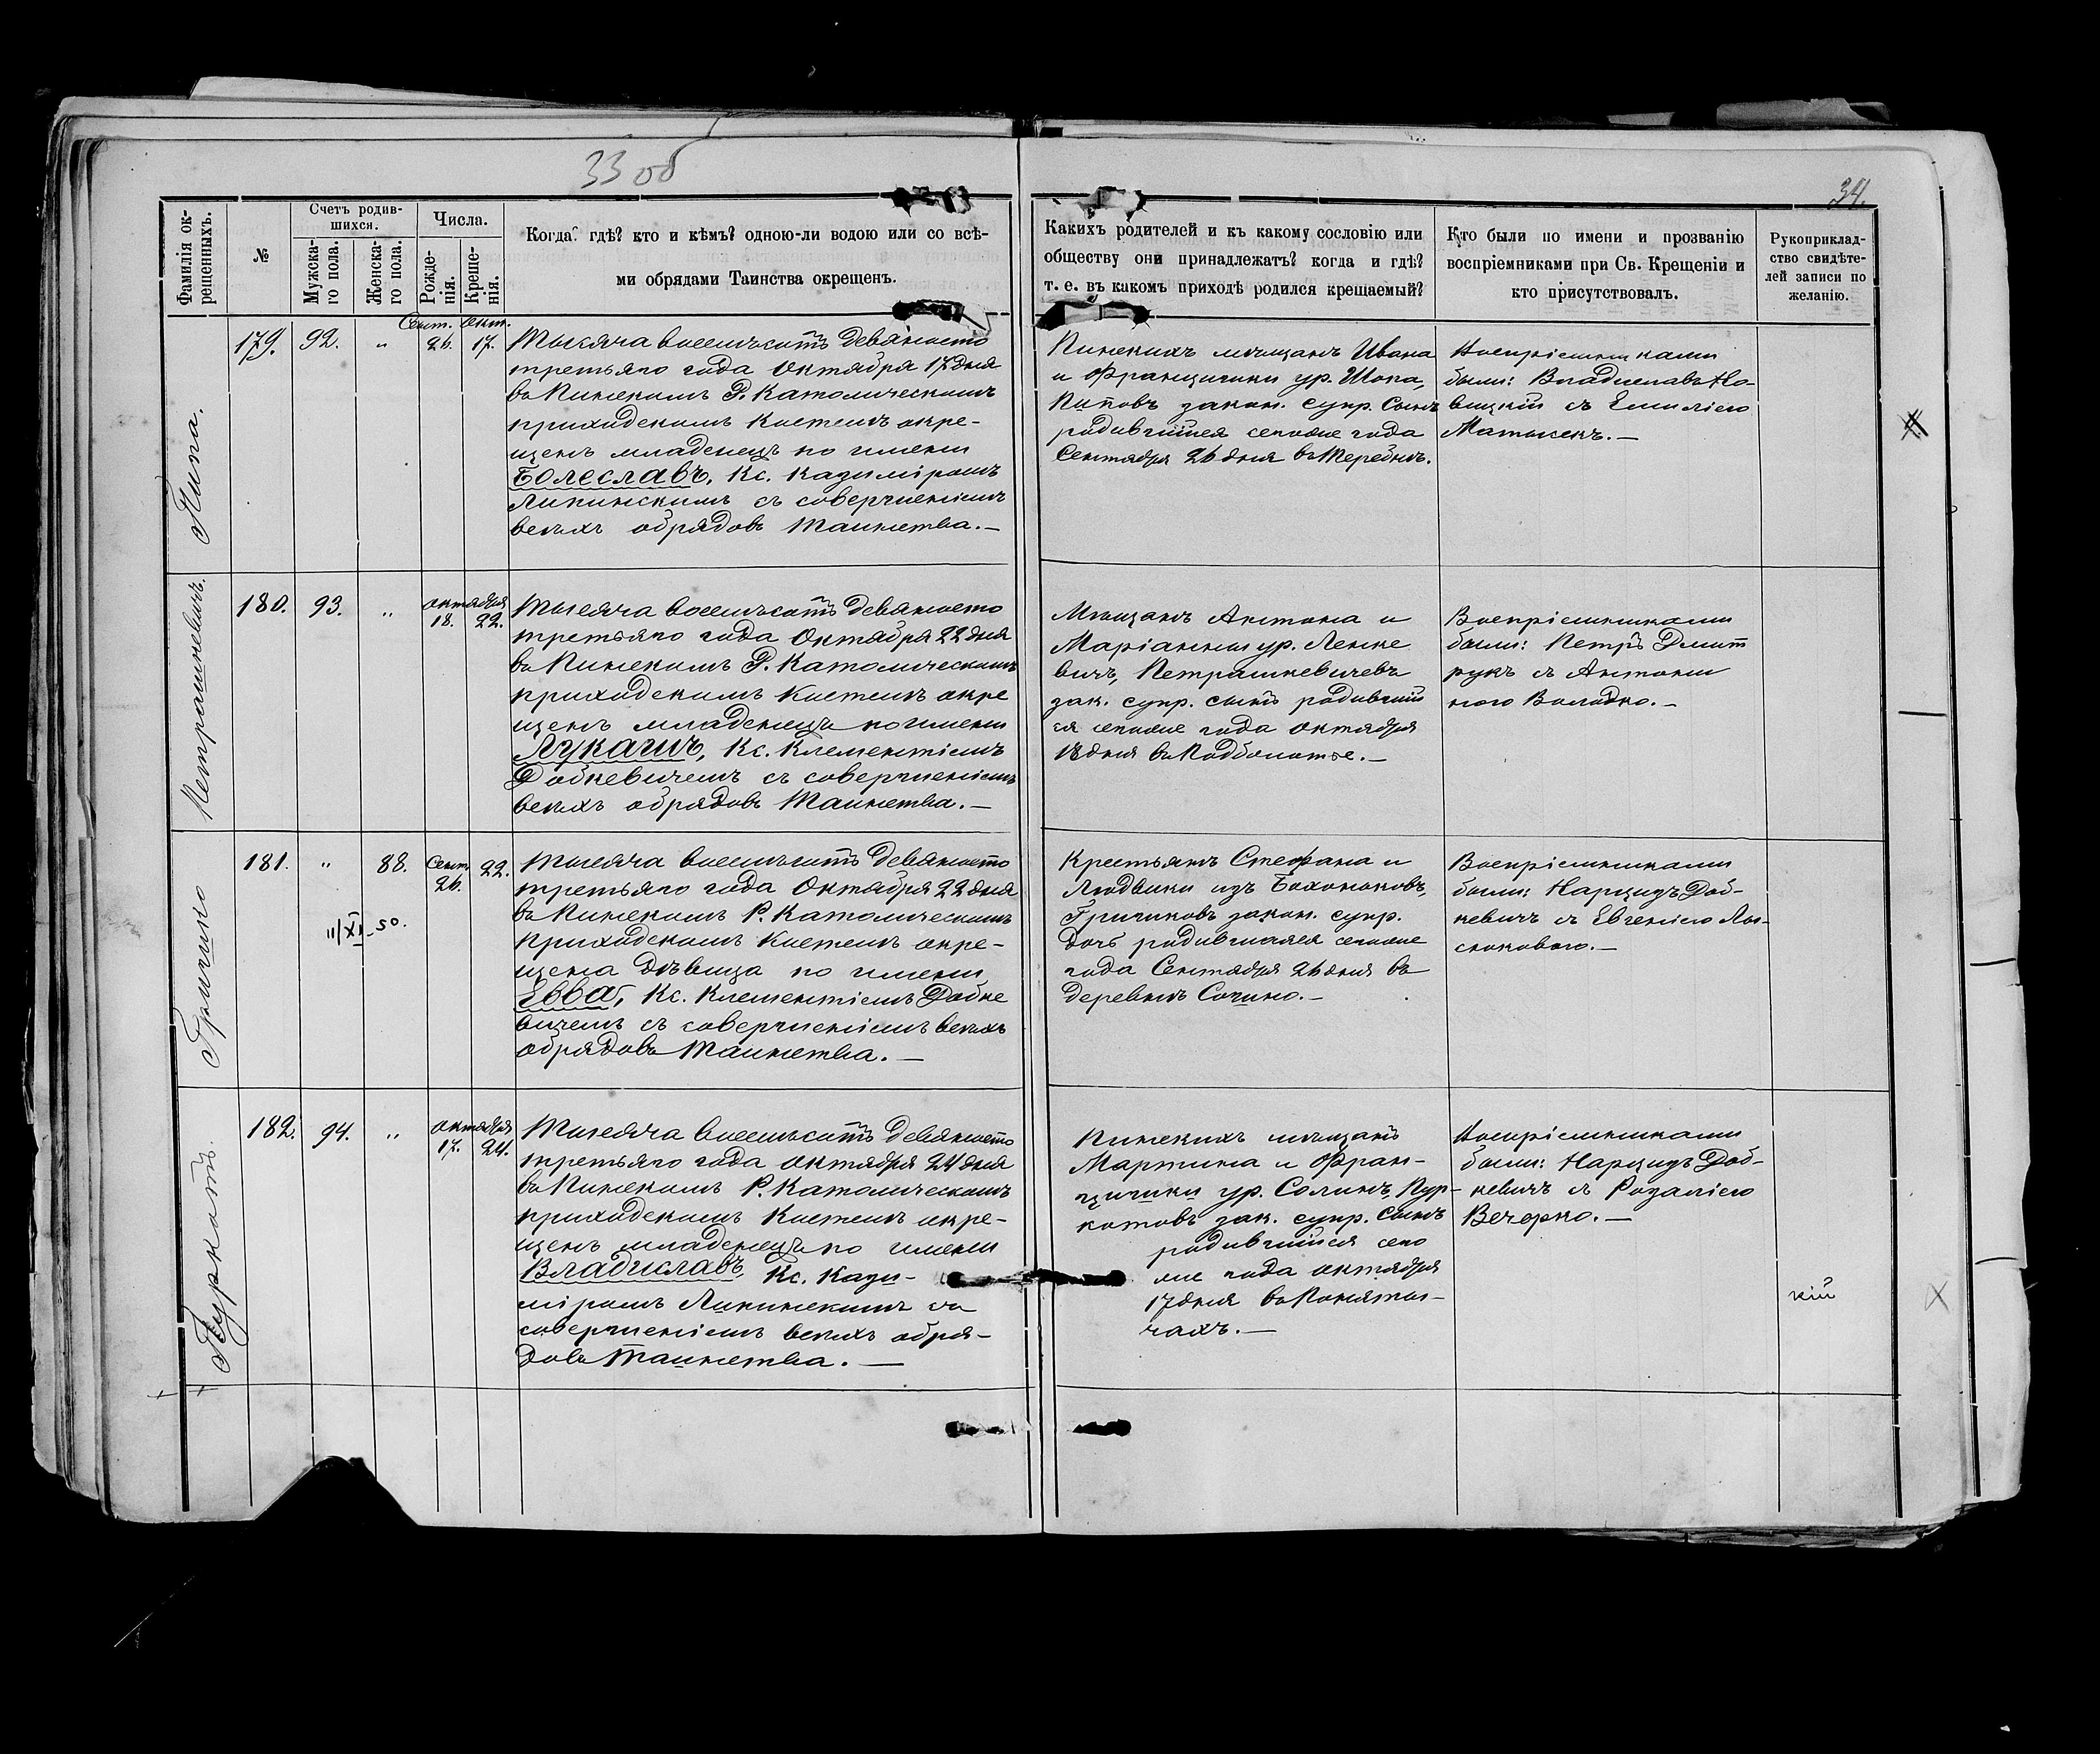 33 об
34.
Фамилія ок-
рещенныхъ.
№
Счетъ родив-
шихся.
Мужска-
го пола.
Женска-
го пола.
Числа.
Рожде-
нія.
Креще-
нія.
Когда? гдѣ? кто и кѣмъ? одною-ли водою или со всѣ-
ми обрядами Таинства окрещенъ.
Какихъ родителей и къ какому сословію или
обществу они принадлежатъ? когда и гдѣ?
т. е. въ какомъ приходѣ родился крещаемый?
Кто были по имени и прозванію
воспріемниками при Св. Крещеніи и
кто присутствовалъ.
Рукоприклад-
ство свидѣте-
лей записи по
желанію.
179.
92.
"
Сент.
26.
Окт.
17.
Тысяча восемьсотъ девяносто
третьяго года Октября 17 дня
въ Пинскомъ Р. Католическомъ
приходскомъ Костелѣ окре-
щенъ младенецъ по имени
Болеславъ, Кс. Казиміромъ
Липинскимъ съ совершеніемъ
всѣхъ обрядовъ Таинства.—
Пинскихъ мѣщанъ Ивана
и Францишки ур. Шопа,
законн. супр. Сынъ
родившійся сегоже года
Сентября 26 дня въ
Воспріемниками
были: Владиславъ Но-
вицкій съ Емиліею
Матысекъ.—
Петрашкевичъ.
180.
93.
"
Октября
18.
22.
Тысяча восемьсотъ девяносто
третьяго года Октября 22 дня
въ Пинскомъ Р. Католическомъ
приходскомъ Костелѣ окре
щенъ младенецъ по имени
Лукашъ, Кс. Клементіемъ
Добкевичемъ съ совершеніемъ
всѣхъ обрядовъ Таинства.—
Мѣщанъ Антона и
Маріанны ур. Ленке
вичъ, Петрашкевичевъ
зак. супр. сынъ родившій
ся сегоже года Октября
18 дня въ Подболотье.—
Воспріемниками
были: Петръ Дмит
рукъ съ Антони
ною Володко.—
Гричико
181.
"
88.
Сент.
26.
22.
11/XI-50.
Тысяча восемьсотъ девяносто
третьяго года Октября 22 дня
въ Пинскомъ Р. Католическомъ
приходскомъ Костелѣ окре-
щена дѣвица по имени
Евва, Кс. Клементіемъ Добке
вичемъ съ совершеніемъ всѣхъ
обрядовъ Таинства.—
Крестьянъ Стефана и
Людвики изъ Бохоноковъ,
Гричиковъ закон. супр.
дочь родившаяся сегоже
года Сентября 26 дня въ
деревнѣ Сочино.—
Воспріемниками
были: Нарцизъ Доб-
кевичъ съ Евгеніею Лы-
сюковою.—
Пуркотъ.
182.
94.
"
Октября
17.
24.
Тысяча восемьсотъ девяносто
третьяго года Октября 24 дня
въ Пинскомъ Р. Католическомъ
приходскомъ Костелѣ окре-
щенъ младенецъ по имени
Владиславъ, Кс. Кази-
міромъ Липинскимъ съ
совершеніемъ всѣхъ обря-
довъ Таинства.—
Пинскихъ мѣщанъ
Мартина и Фран-
цишки ур. Солинъ, Пур-
котовъ зак. супр. Сынъ
родившійся сего
же года Октября
17 дня въ Поняты-
чахъ.—
Воспріемниками
были: Нарцизъ Доб-
кевичъ съ Розаліею
Вечорко.—
кій